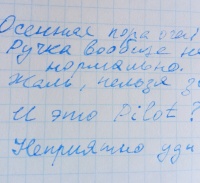 Осенняя пора очей
Ручка вообще не
нормально.
Жаль, нельзя з
И это Pilot?
Неприятно уди